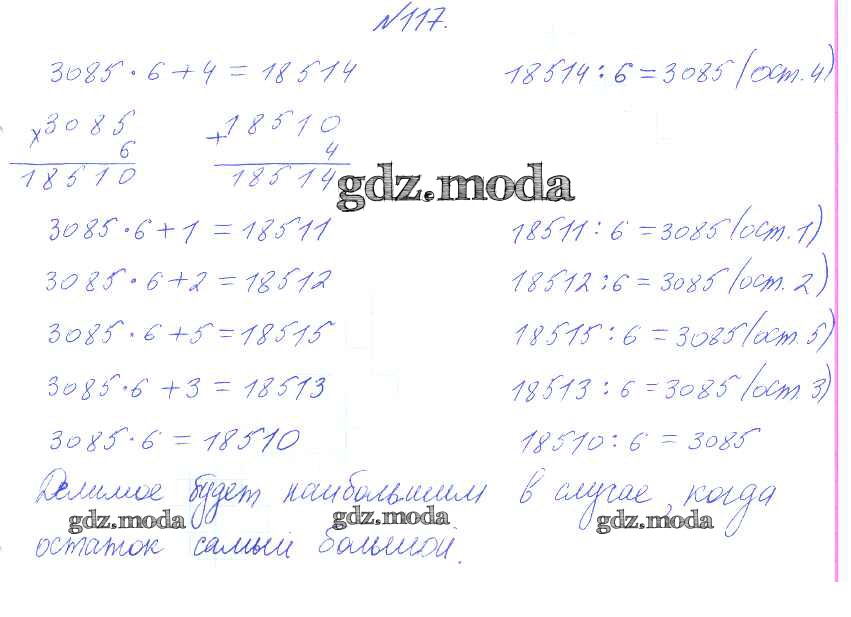 №117.
3085 · 6 + 4 = 18514 18514 : 6 = 3085 (ост. 4)
× 3085 + 18510
6 4
18510 18514
gdz.moda
3085 · 6 + 1 = 18511 18511 : 6 = 3085 (ост. 1)
3085 · 6 + 2 = 18512 18512 : 6 = 3085 (ост. 2)
3085 · 6 + 5 = 18515 18515 : 6 = 3085 (ост. 5)
3085 · 6 + 3 = 18513 18513 : 6 = 3085 (ост 3)
3085 · 6 = 18510 18510 : 6 = 3085
Делимое будет наибольшим в случае, когда
gdz.moda gdz.moda gdz.moda
остаток самый большой.